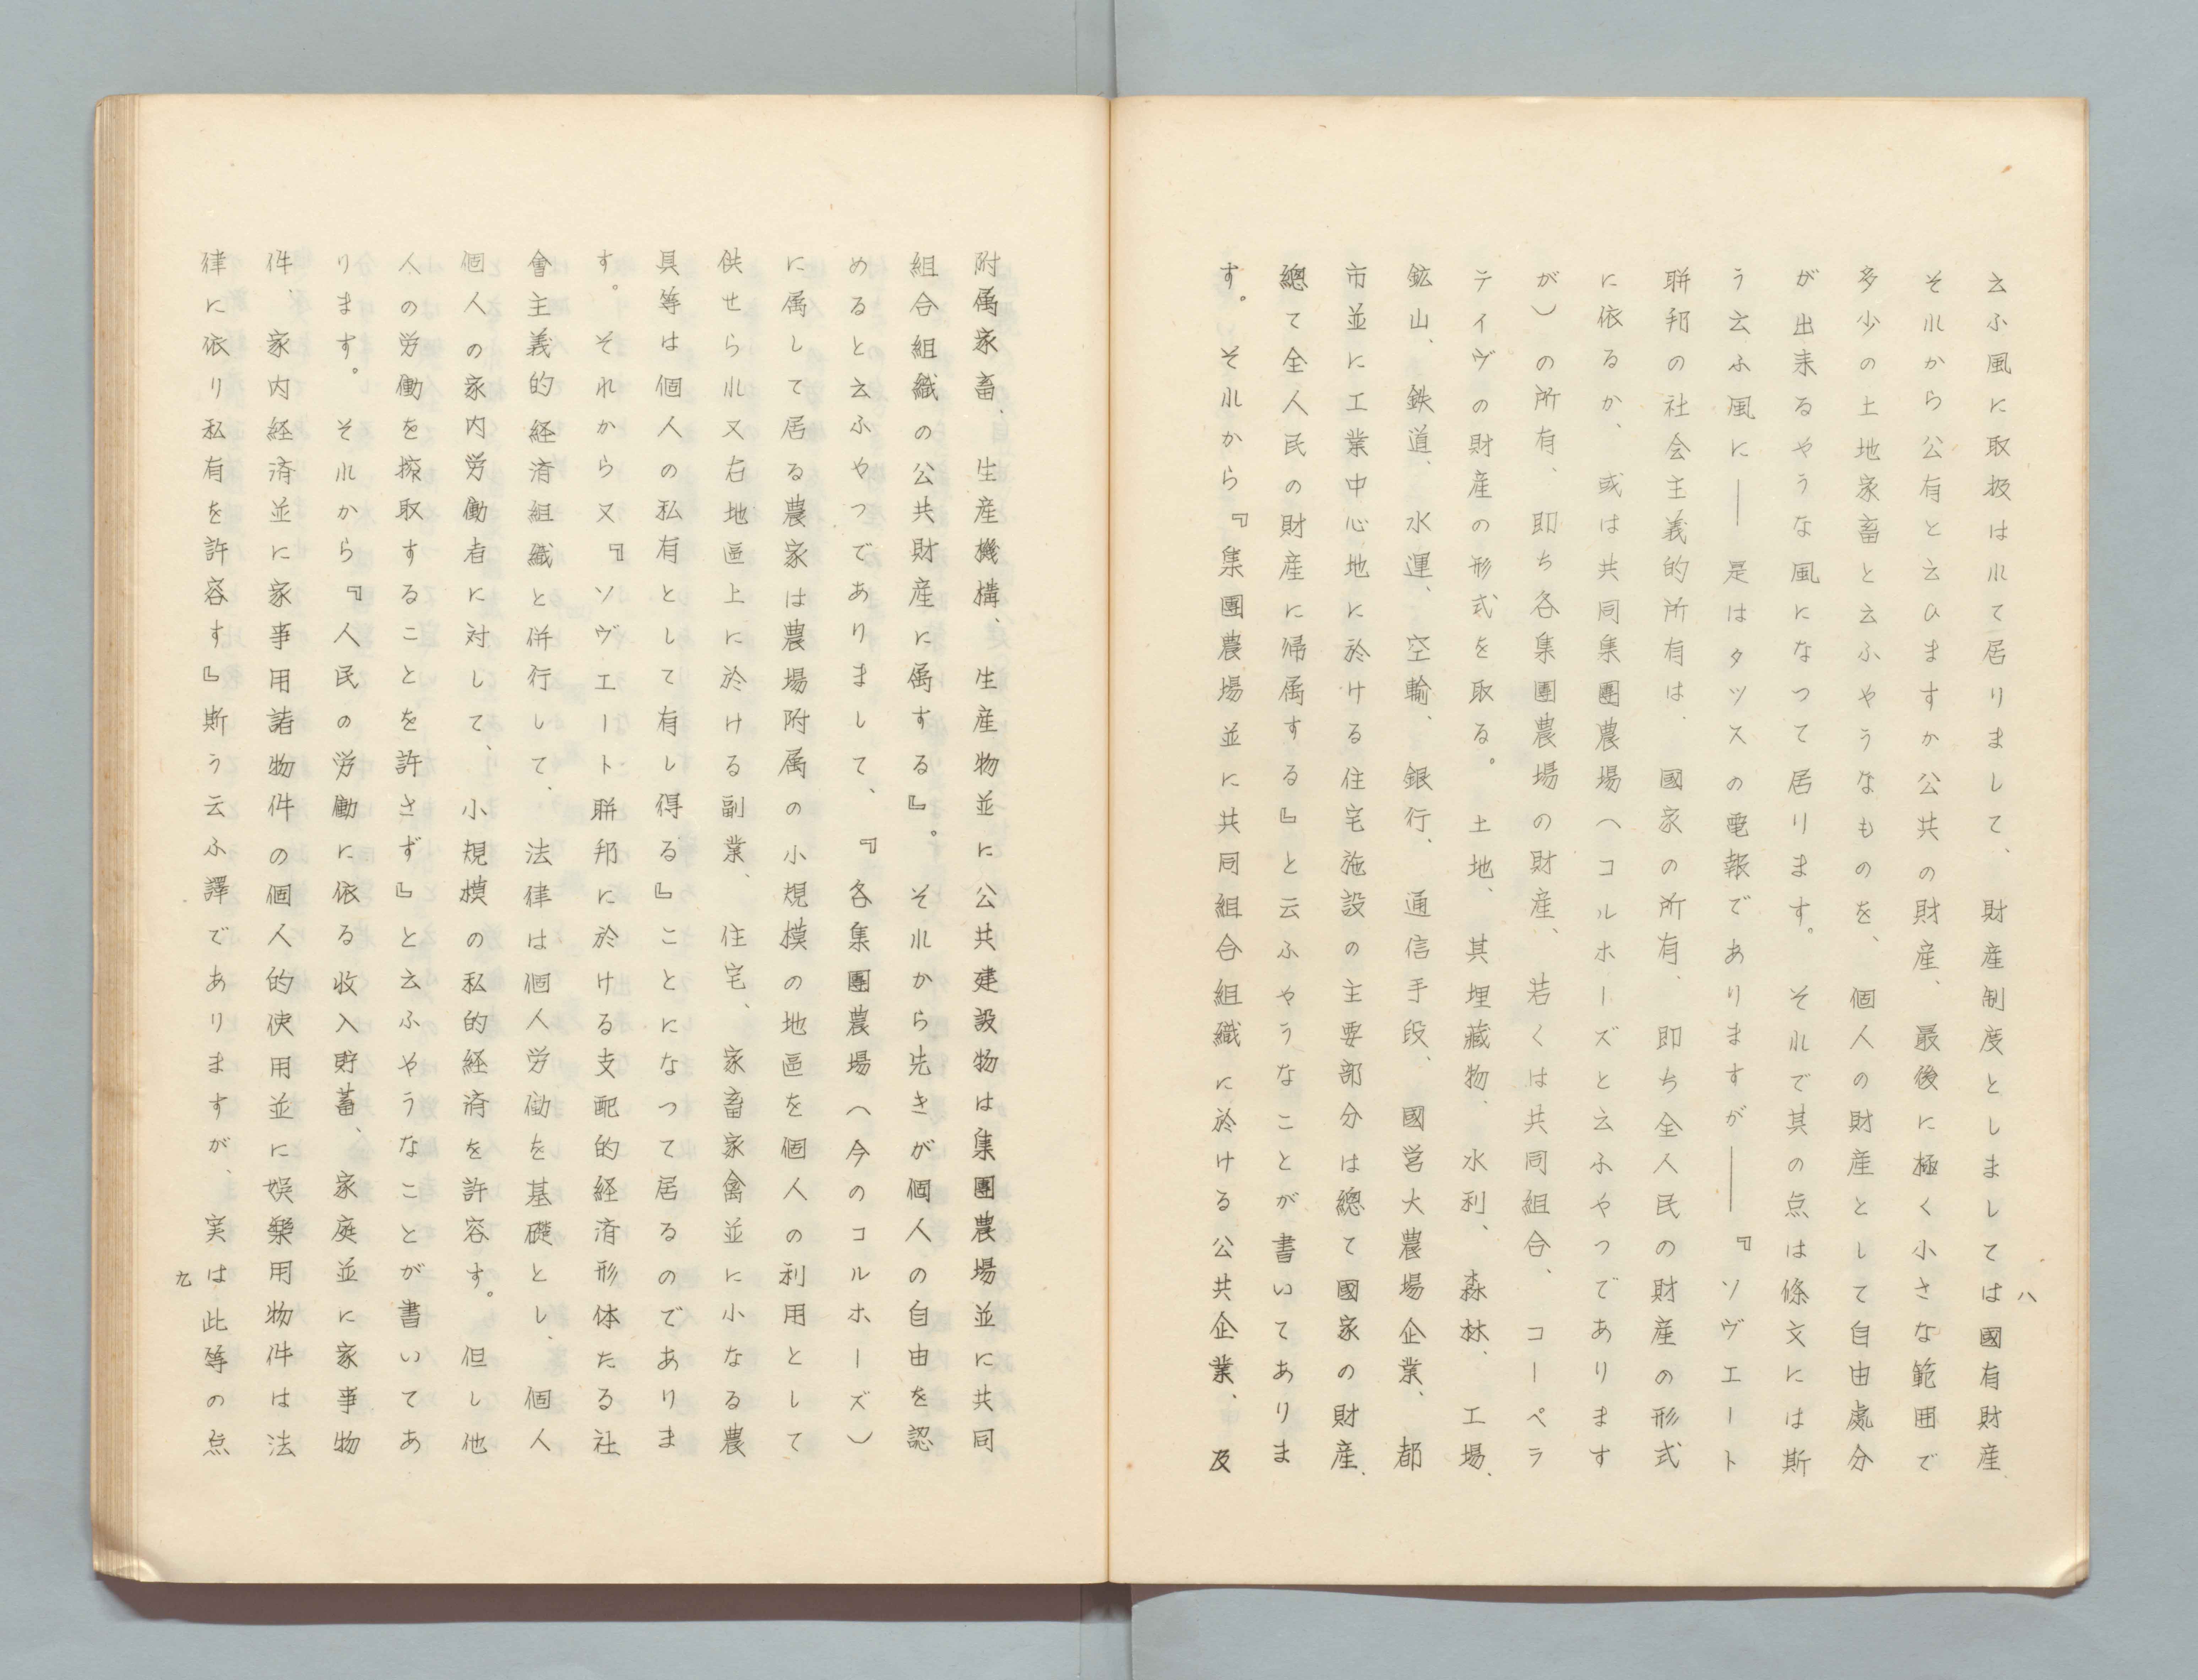 云ふ風に取扱はれて居りまして、財産制度としましては國有財産、
それから公有と云ひますか公共の財産、最後に極く小さな範囲で
多少の土地家畜と云ふやうなものを、個人の財産として自由處分
が出来るやうな風になつて居ります。それで其の点は條文には斯
う云ふ風に――是はタツスの電報でありますが――『ソヴエート
聯邦の社会主義的所有は、國家の所有、即ち全人民の財産の形式
に依るか、或は共同集團農場（コルホーズと云ふやつであります
が）の所有、即ち各集團農場の財産、若くは共同組合、コーペラ
テイヴの財産の形式を取る。土地、其埋藏物、水利、森林、工場、
鉱山、鉄道、水運、空輸、銀行、通信手段、國営大農場企業、都
市並に工業中心地に於ける住宅施設の主要部分は總て國家の財産、
總て全人民の財産に帰属する』と云ふやうなことが書いてありま
す。それから『集團農場並に共同組合組織に於ける公共企業、及
八
附属家畜、生産機構、生産物並に公共建設物は集團農場並に共同
組合組織の公共財産に属する』。それから先きが個人の自由を認
めると云ふやつでありまして、『各集團農場（今のコルホーズ）
に属して居る農家は農場附属の小規模の地區を個人の利用として
供せられ又右地區上に於ける副業、住宅、家畜家禽並に小なる農
具等は個人の私有として有し得る』ことになつて居るのでありま
す。それから又『ソヴエート聯邦に於ける支配的経済形体たる社
會主義的経済組織と併行して、法律は個人労働を基礎とし、個人
個人の家内労働者に対して、小規模の私的経済を許容す。但し他
人の労働を搾取することを許さず』と云ふやうなことが書いてあ
ります。それから『人民の労働に依る收入貯蓄、家庭並に家事物
件、家内経済並に家事用諸物件の個人的使用並に娯樂用物件は法
律に依り私有を許容す』斯う云ふ譯でありますが、実は此等の点
九